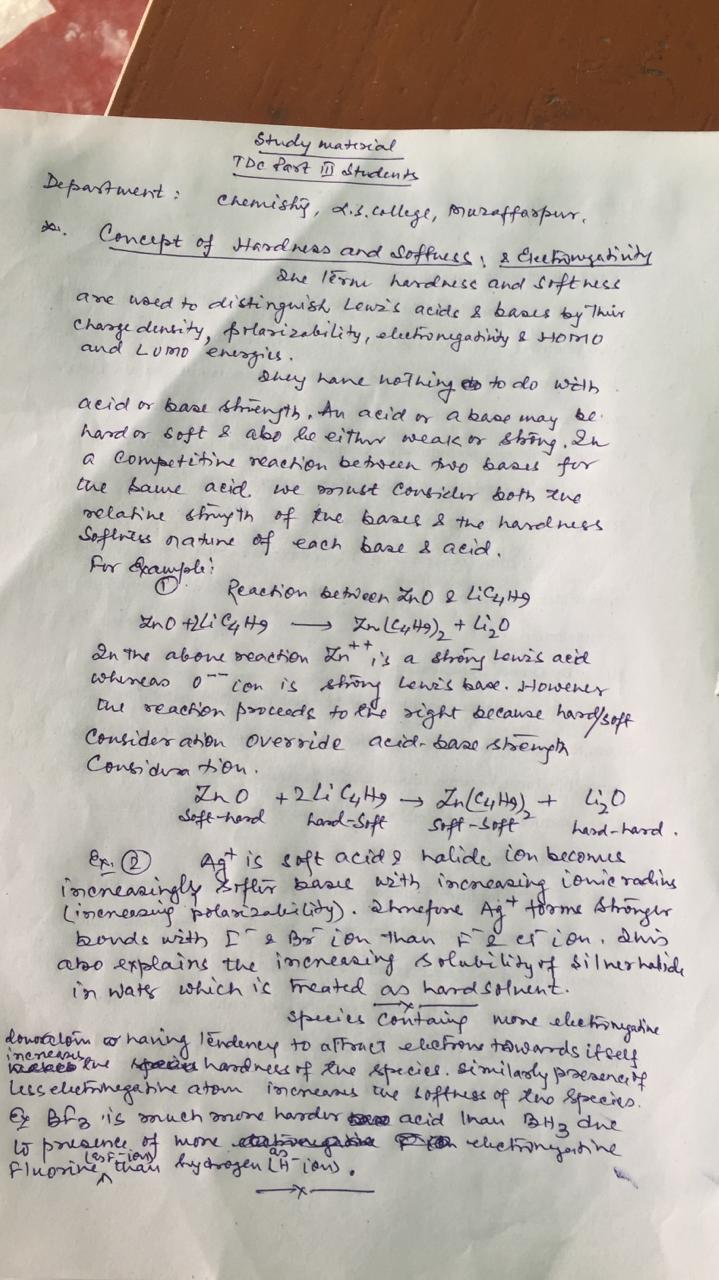 Study material
TDC Part III Students
Department : Chemistry, L.S. College, Muzaffarpur.
Concept of Hardness and Softness, & Electronegativity
The term hardness and softness
are used to distinguish Lewis acids & bases by their
charge density, polarizability, electronegativity & HOMO
and LUMO energies.
They have nothing to do with
acid or base strength. An acid or a base may be
hard or soft & also be either weak or strong. In
a competitive reaction between two bases for
the same acid, we must consider both the
relative strength of the bases & the hardness
softness nature of each base & acid.
For Example:
① Reaction between ZnO & LiC4H9
ZnO + 2LiC4H9 ⟶ Zn(C4H9)2 + Li2O
In the above reaction Zn++ is a strong Lewis acid
whereas O-- ion is strong Lewis base. However
the reaction proceeds to the right because hard/soft
consideration override acid-base strength
consideration.
ZnO + 2LiC4H9 → Zn(C4H9)2 + Li2O
soft-hard hard-soft soft-soft hard-hard.
Ex. ② Ag+ is soft acid & halide ion becomes
increasingly softer base with increasing ionic radius
(increasing polarizability). Therefore Ag+ forms stronger
bonds with I- & Br- ion than F- & Cl- ion. This
also explains the increasing solubility of silver halide
in water which is treated as hard solvent.
Species containg more electronegative
donor atom having tendency to attract electrons towards itself
increases the hardness of the species. Similarly presence of
less electronegative atom increases the softness of the species.
Ex BF3 is much more harder acid than BH3 due
to presence of more electronegative
Fluorine (as F- ion) than hydrogen (as H- ion).